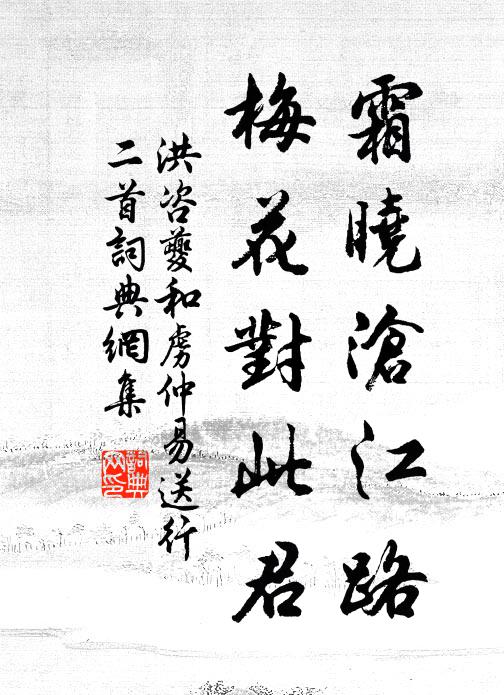 霜曉滄江路
梅花對此君
洪咨夔和虞仲易送行
二首詞典網集
詞典網印